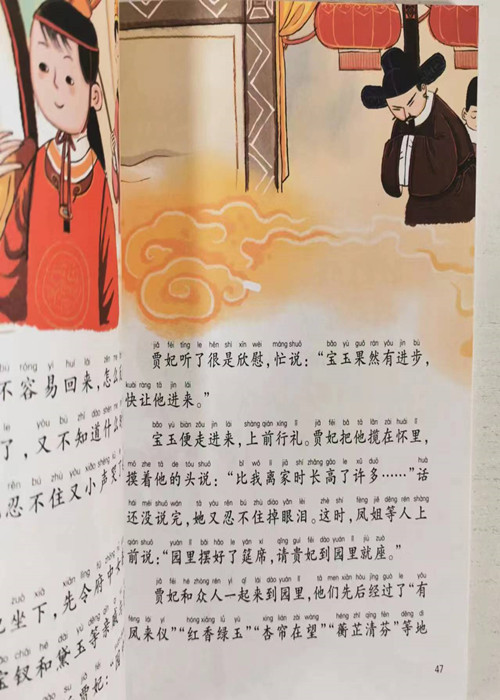 不容易回来，怎么
了，又不知道什么
忍不住又小声哭了
坐下，先令府中
宝钗和黛玉等亲
贾妃：
jiǎ fēi tīng le hěn shì xīn wèi máng shuō bǎo yù guǒ rán yǒu jìn bù
贾妃听了很是欣慰，忙说：“宝玉果然有进步，
kuài ràng tā jìn lái
快让他进来。”
bǎo yù biàn zǒu jìn lái shàng qián xíng lǐ jiǎ fēi bǎ tā lǎn zài huái lǐ
宝玉便走进来，上前行礼。贾妃把他揽在怀里，
mō zhe tā de tóu shuō bǐ wǒ lí jiā shí zhǎng gāo le xǔ duō huà
摸着他的头说：“比我离家时长高了许多……”话
hái méi shuō wán tā yòu rěn bú zhù diào yǎn lèi zhè shí fèng jiě děng rén shàng
还没说完，她又忍不住掉眼泪。这时，凤姐等人上
qián shuō yuán lǐ bǎi hǎo le yán xí qǐng guì fēi dào yuán lǐ jiù zuò
前说：“园里摆好了筵席，请贵妃到园里就座。”
jiǎ fēi hé zhòng rén yì qǐ lái dào yuán lǐ tā men xiān hòu jīng guò le yǒu
贾妃和众人一起来到园里，他们先后经过了“有
fèng lái yí hóng xiāng lǜ yù xìng lián zài wàng héng zhǐ qīng fēn děng dì
凤来仪”“红香绿玉”“杏帘在望”“蘅芷清芬”等地
47